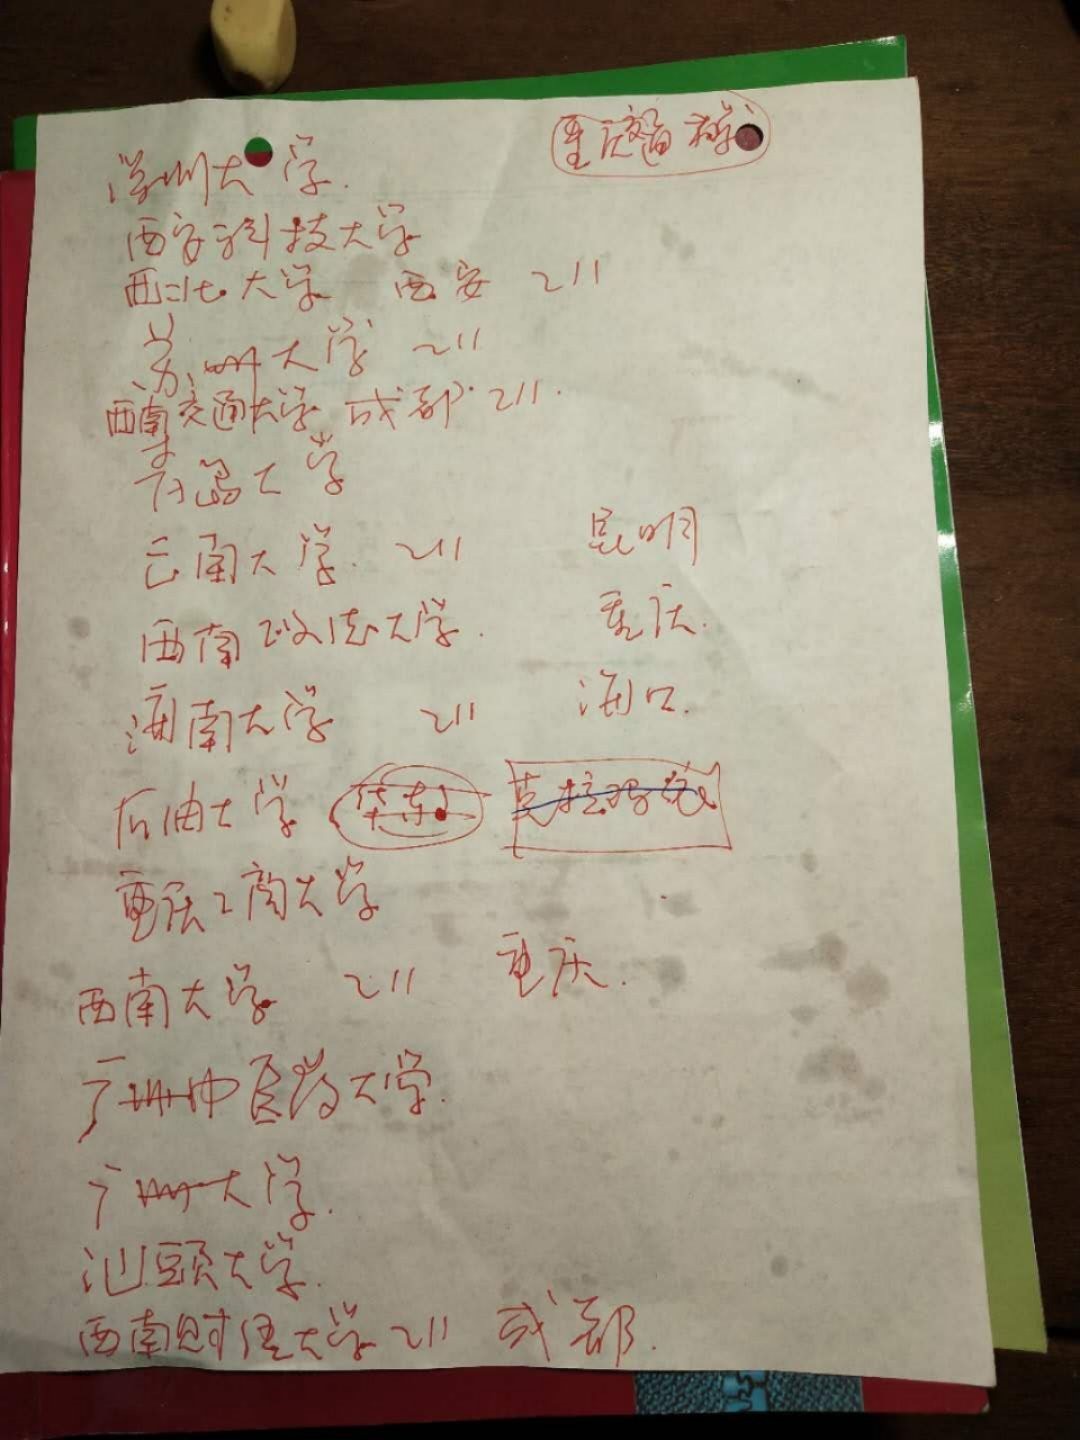 重庆交通大学
深圳大学.
西安科技大学
西北大学 西安 211
苏州大学 211
西南交通大学 成都 211.
青岛大学
云南大学. 211 昆明
西南政法大学. 重庆.
海南大学 211 海口.
石油大学 华东 克拉玛依
重庆工商大学
西南大学 211 重庆.
广州中医药大学.
广州大学.
汕頭大学.
西南财经大学 211 成都.